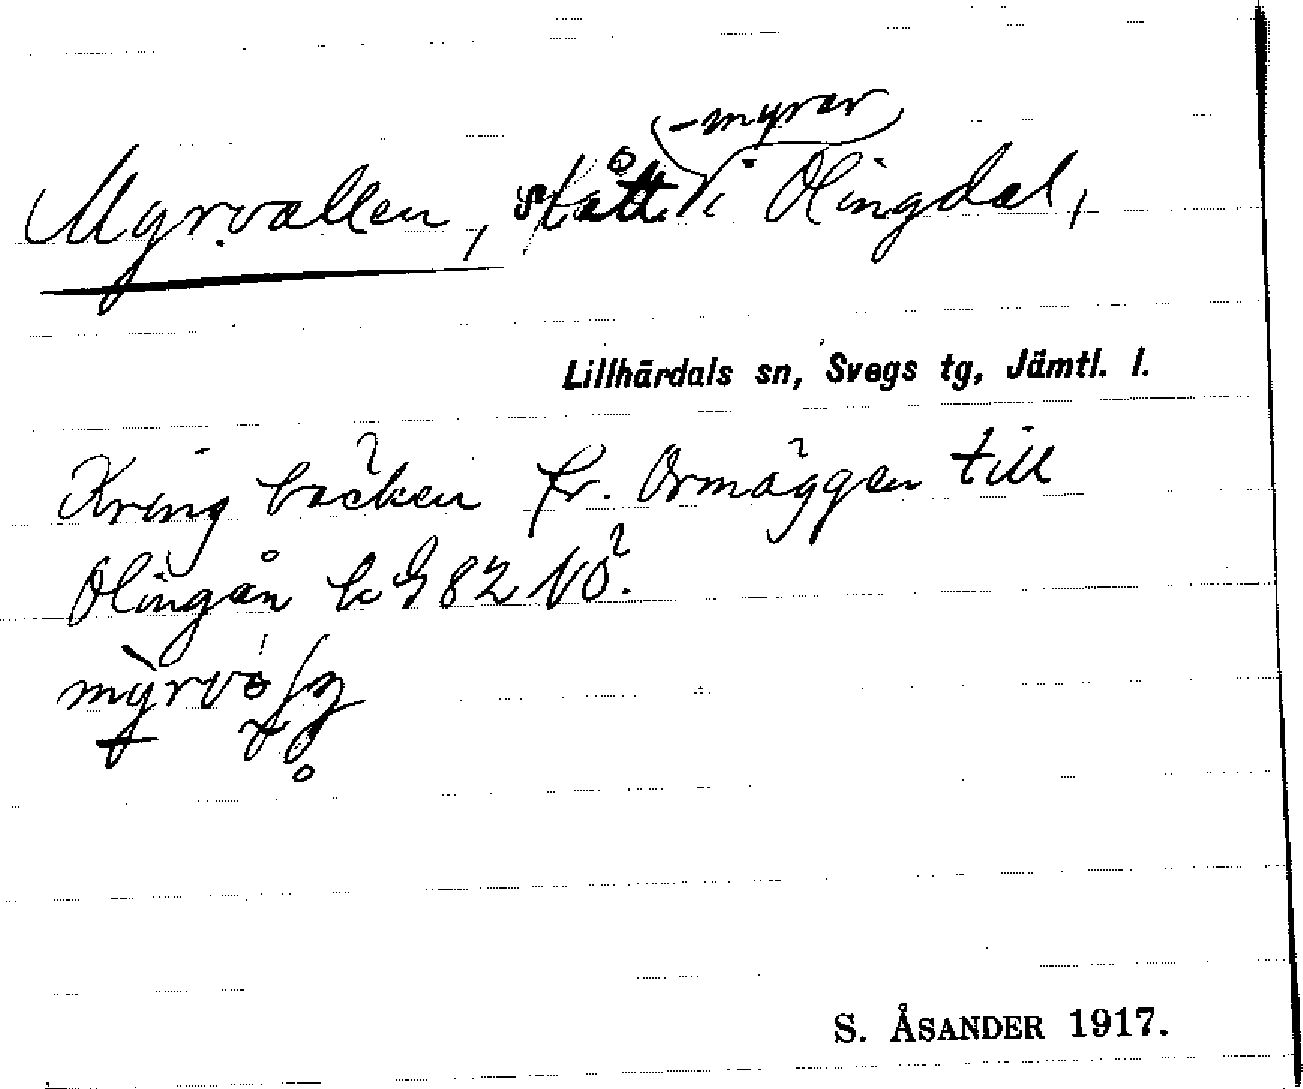 Myrvallen, slått-myrar i Olingdal,
Lillhärdals sn, Svegs tg, Jämtl. l.
Kring bäcken fr. Ormäggen till
Olingån k G 82 NÖ.
S. ÅSANDER 1917.